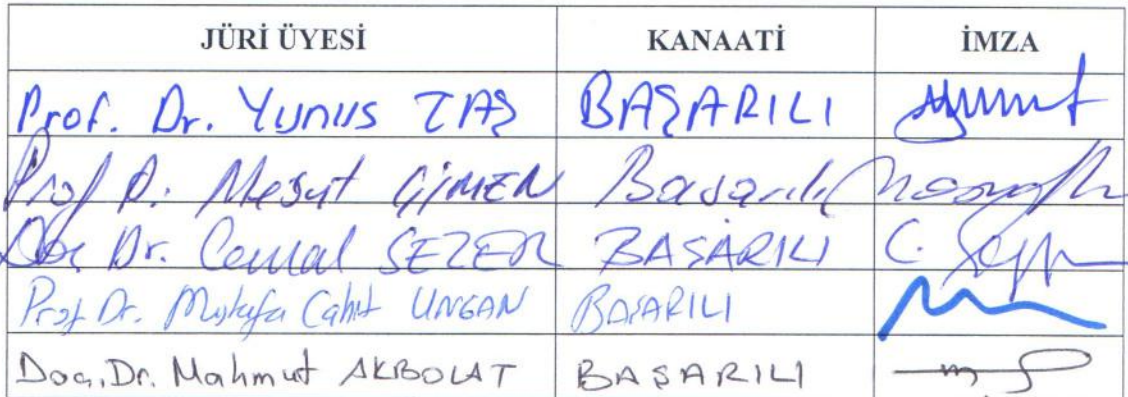 JÜRİ ÜYESİ KANAATİ İMZA
Prof. Dr. Yunus TAŞ BAŞARILI
Prof. D. Mesut ÇİMEN Başarılı
Doç. Dr. Cemal SEZER BAŞARILI
Prof. Dr. Mustafa Cahit UNGAN BAŞARILI
Doç. Dr. Mahmut AKBOLAT BAŞARILI